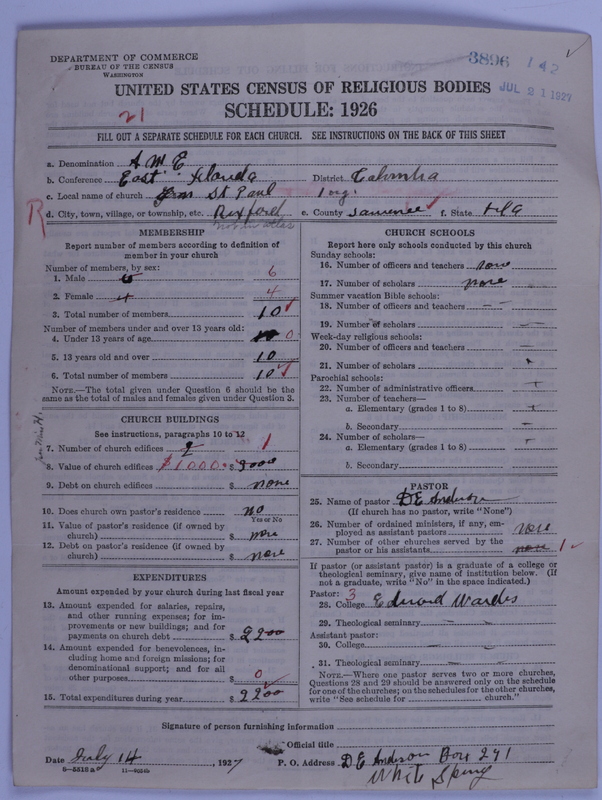 DEPARTMENT OF COMMERCE
BUREAU OF THE CENSUS
WASHINGTON
3896 142
JUL 21 1927
UNITED STATES CENSUS OF RELIGIOUS BODIES
21
SCHEDULE: 1926
FILL OUT A SEPARATE SCHEDULE FOR EACH CHURCH. SEE INSTRUCTIONS ON THE BACK OF THIS SHEET
a. Denomination A M E
b. Conference East Florida District
c. Local name of church St Paul 1 org.
R d. City, town, village, or township, etc. Rixford e. County Suwanee f. State Fla
not in atlas
MEMBERSHIP
Report number of members according to definition of member in your church
Number of members, by sex:
1. Male 6 6
2. Female 4 4
3. Total number of members 10
Number of members under and over 13 years old:
4. Under 13 years of age 0
5. 13 years old and over 10
6. Total number of members 10
NOTE.—The total given under Question 6 should be the same as the total of males and females given under Question 3.
CHURCH BUILDINGS
See instructions, paragraphs 10 to 12
7. Number of church edifices 1
8. Value of church edifices $1000. $
9. Debt on church edifices $ none
10. Does church own pastor's residence no
Yes or No
11. Value of pastor's residence (if owned by church) $ none
12. Debt on pastor's residence (if owned by church) $ none
EXPENDITURES
Amount expended by your church during last fiscal year
13. Amount expended for salaries, repairs, and other running expenses; for improvements or new buildings; and for payments on church debt $ 2200
14. Amount expended for benevolences, including home and foreign missions; for denominational support; and for all other purposes $ 0
15. Total expenditures during year $ 2200
CHURCH SCHOOLS
Report here only schools conducted by this church
Sunday schools:
16. Number of officers and teachers none
17. Number of scholars none
Summer vacation Bible schools:
18. Number of officers and teachers
19. Number of scholars
Week-day religious schools:
20. Number of officers and teachers
21. Number of scholars
Parochial schools:
22. Number of administrative officers
23. Number of teachers—
a. Elementary (grades 1 to 8)
b. Secondary
24. Number of scholars—
a. Elementary (grades 1 to 8)
b. Secondary
PASTOR
25. Name of pastor D E Anderson
(If church has no pastor, write "None")
26. Number of ordained ministers, if any, employed as assistant pastors none
27. Number of other churches served by the pastor or his assistants none 1
If pastor (or assistant pastor) is a graduate of a college or theological seminary, give name of institution below. (If not a graduate, write "No" in the space indicated.)
Pastor: 3
28. College Edward Wardes
29. Theological seminary
Assistant pastor:
30. College
31. Theological seminary
NOTE.—Where one pastor serves two or more churches, Questions 28 and 29 should be answered only on the schedule for one of the churches; on the schedules for the other churches, write "See schedule for ______ church."
Signature of person furnishing information
Official title
Date July 14, 1927 P. O. Address D E Anderson Box 291
White Spring